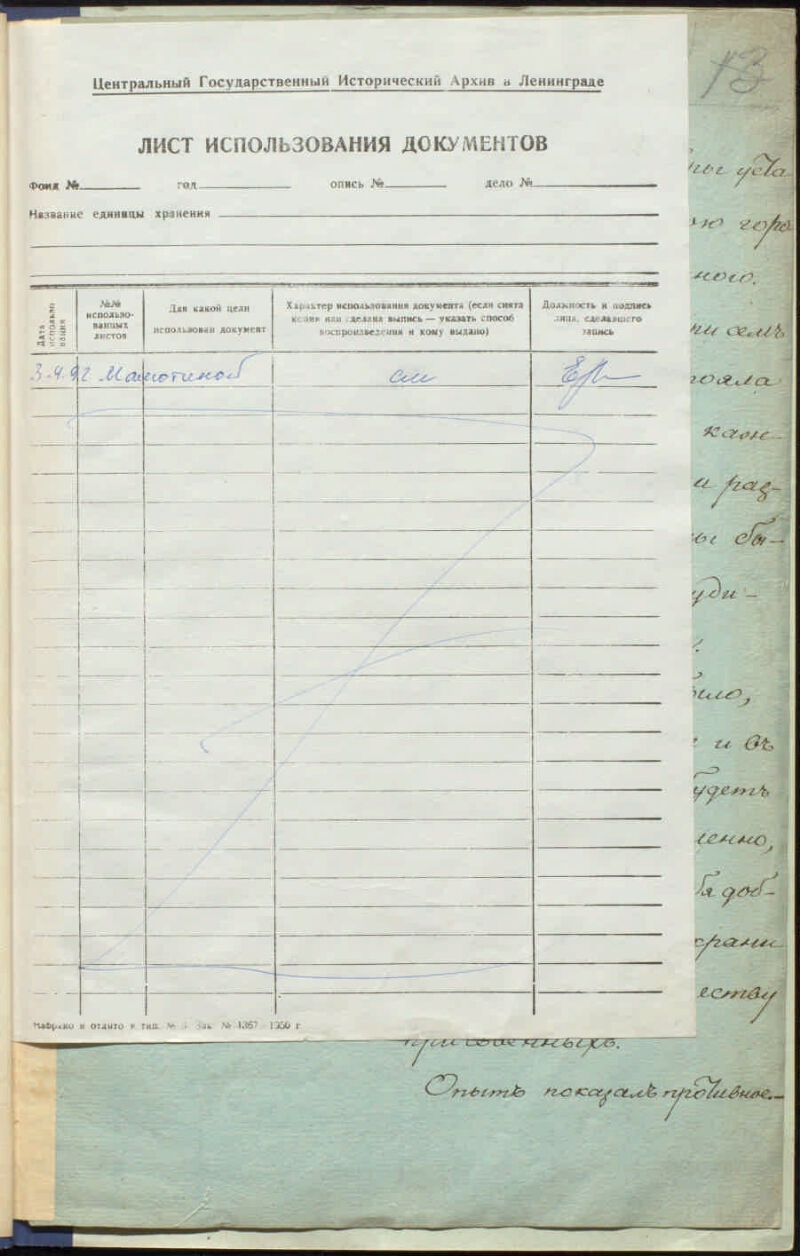 Центральный Государственный Исторический Архив в Ленинграде
ЛИСТ ИСПОЛЬЗОВАНИЯ ДОКУМЕНТОВ
Фонд № год опись № дело №
Название единицы хранения
Дата использования
№№ использо-
ванных
листов
Для какой цели
использован документ
Характер использования документа (если снята
копия или сделана выпись — указать способ
воспроизведения и кому выдано)
Должность и подпись
лица, сделавшего
запись
3-4.92 см
Набрано и отлито в тип. № Зак. № 1367 1950 г
13
ны уста
ою горо
ного.
ри семъ
тояла
каж-
а раз-
ны бы-
уди-
было,
и въ
удетъ
ленно,
доб-
храни
еству
присвоенныхъ.
Опытъ показалъ противное.—